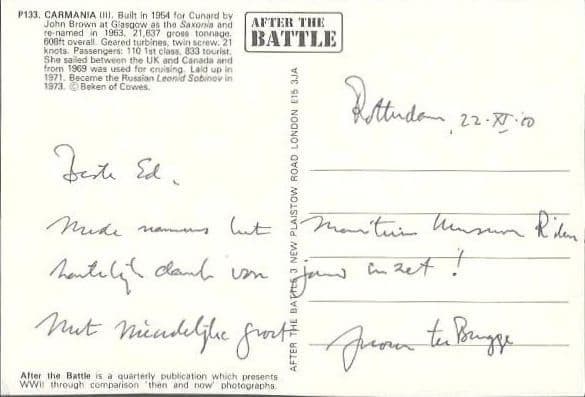 P133. CARMANIA (II). Built in 1954 for Cunard by
John Brown at Glasgow as the Saxonia and
re-named in 1963. 21,637 gross tonnage.
608ft overall. Geared turbines, twin screw. 21
knots. Passengers: 110 1st class, 833 tourist.
She sailed between the UK and Canada and
from 1969 was used for cruising. Laid up in
1971. Became the Russian Leonid Sobinov in
1973. © Beken of Cowes.
AFTER THE
BATTLE
Rotterdam, 22-XI-00
Beste Ed,
Mede namens het Maritiem Museum R'dam
hartelijk dank voor jouw inzet!
Met vriendelijke groet, ter Brugge
AFTER THE BATTLE 3 NEW PLAISTOW ROAD LONDON E15 3JA
After the Battle is a quarterly publication which presents
WWII through comparison 'then and now' photographs.